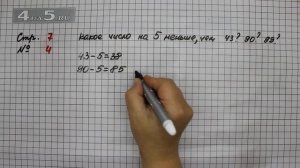 4АВ5.RU
Стр. 7 Какое число на 5 меньше, чем 43? 90? 88?
№ 4
43-5=38
90-5=85